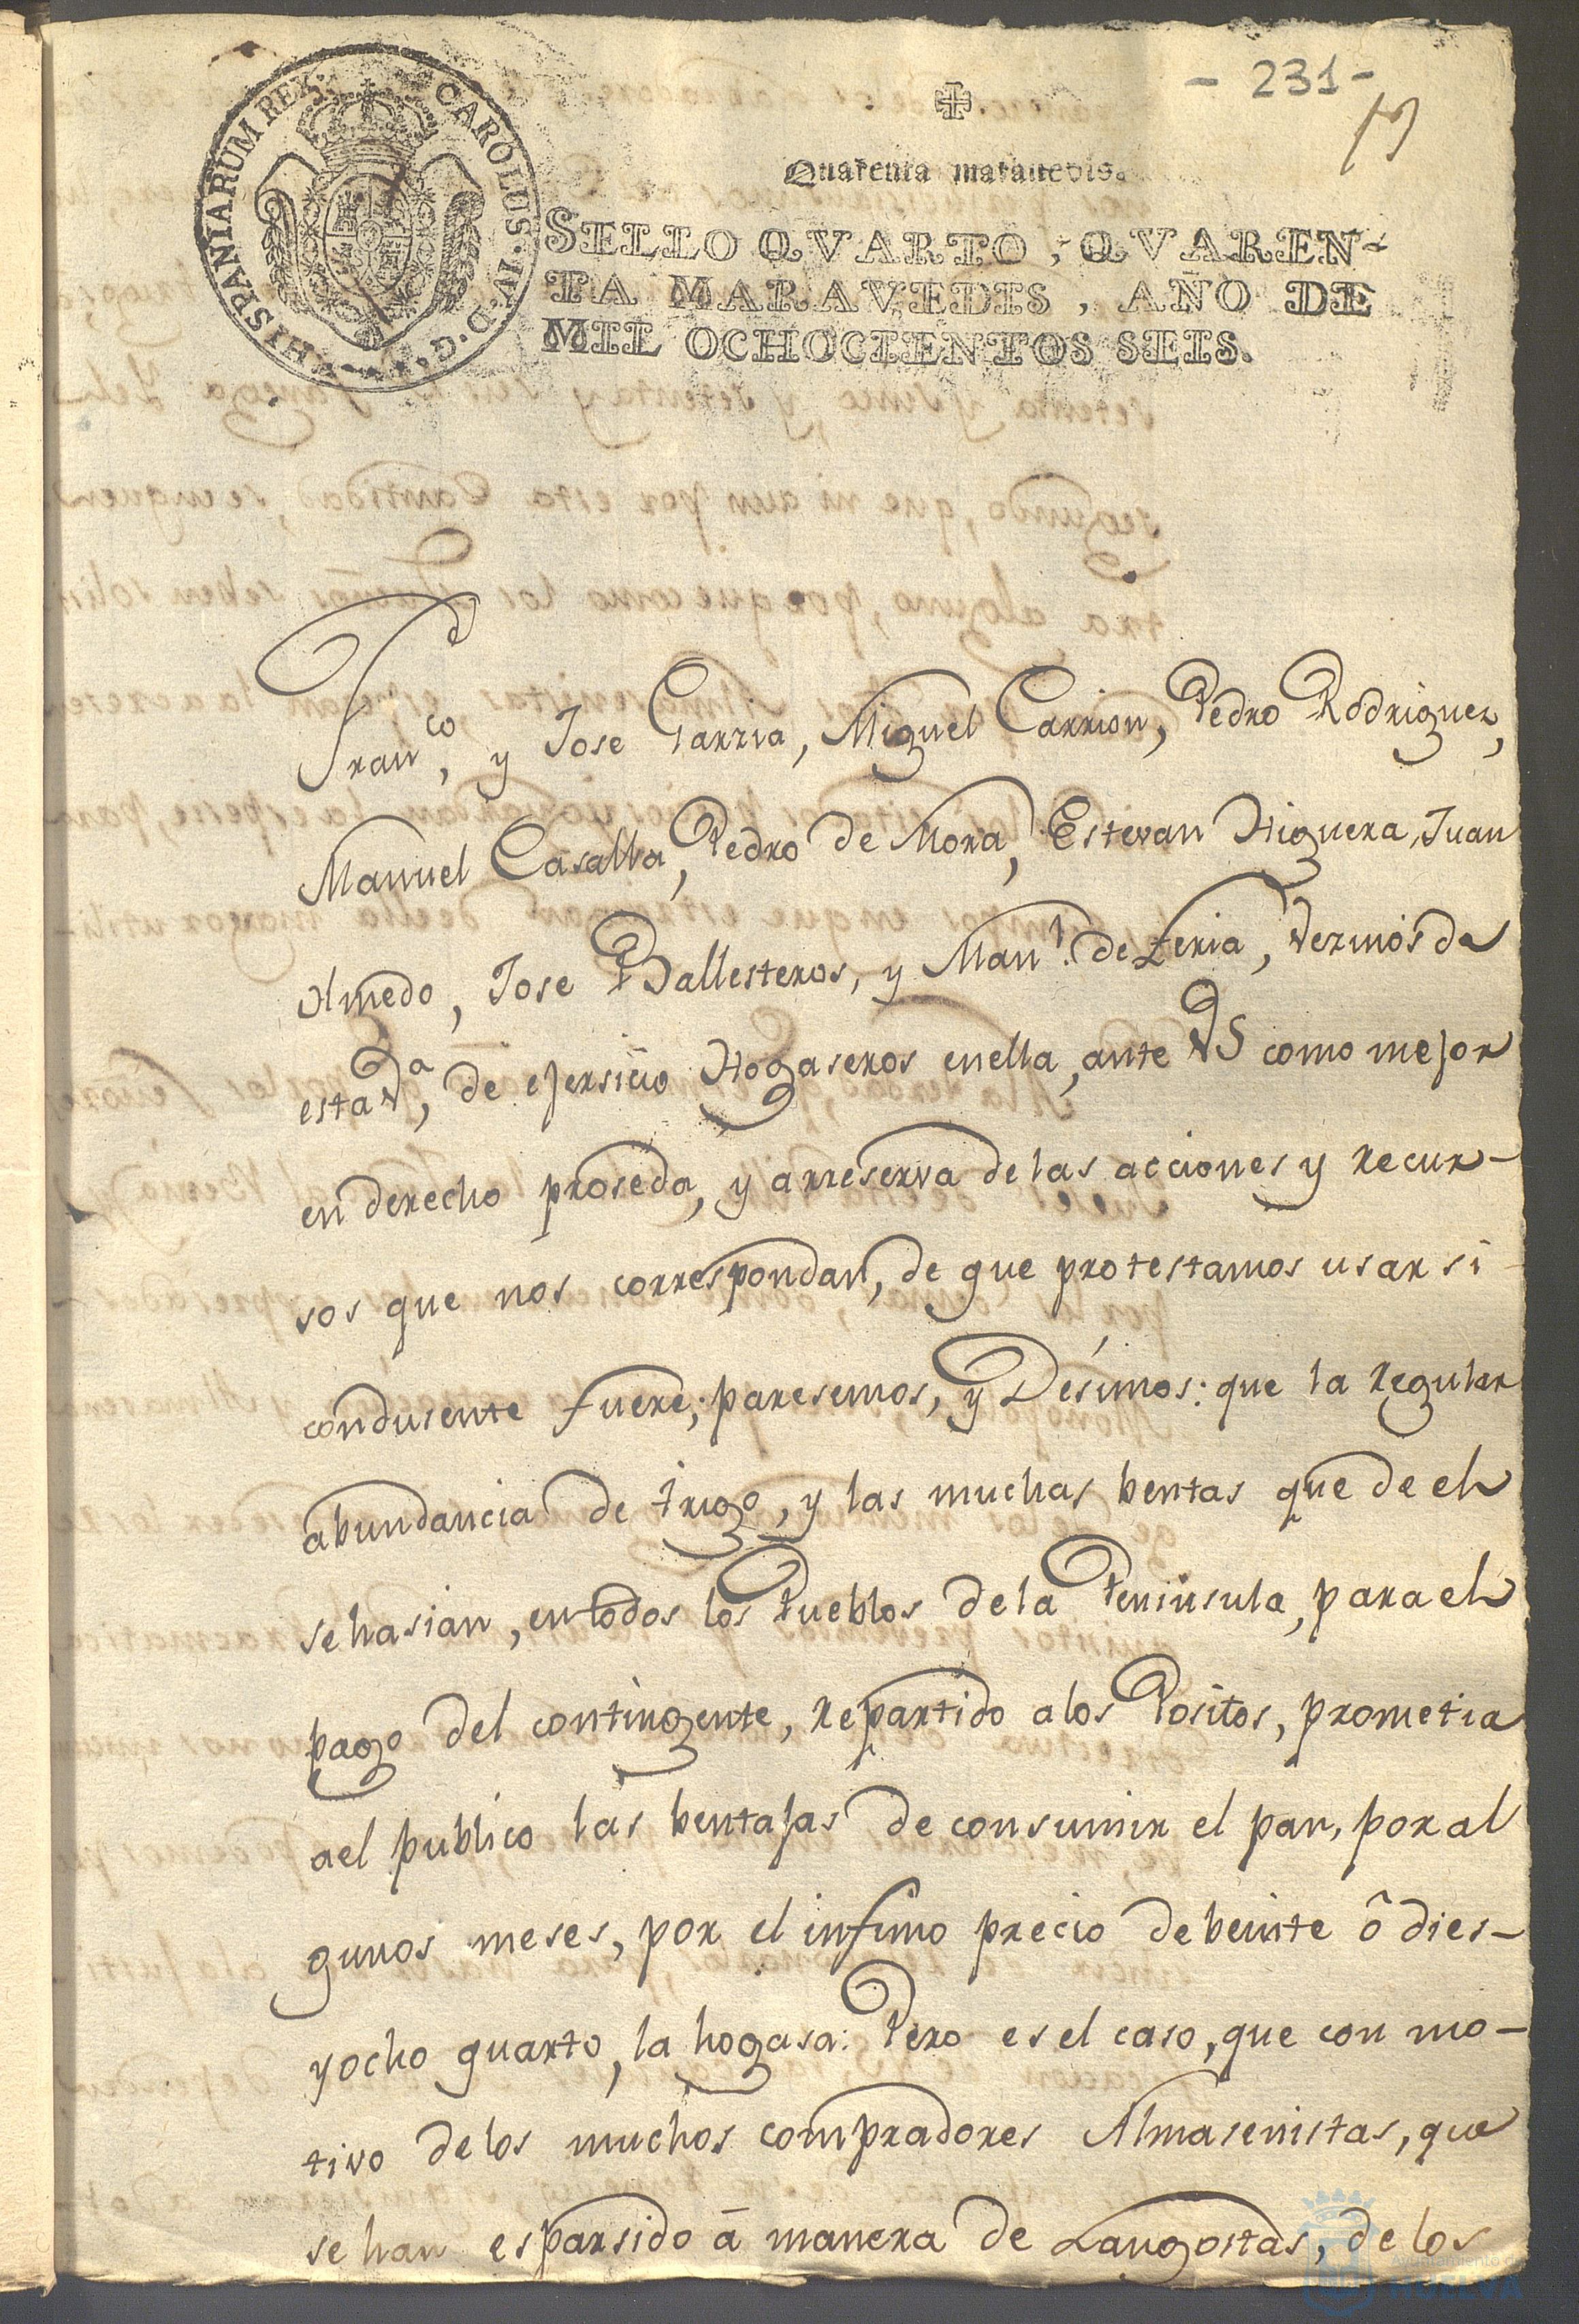 - 231 -
Quarenta maravedis.
CAROLUS·IV·D·G·HISPANIARUM REX·
SELLO QVARTO, QVAREN-
TA MARAVEDIS, AÑO DE
MIL OCHOCIENTOS SEIS.
Franco, y Jose Garzia, Miguel Carrion, Pedro Rodriguez,
Manuel Casalla, Pedro de Mora, Estevan Higuera, Juan
Olmedo, Jose Ballesteros, y Manl. de Leria, Vezinos de
esta Va, de ejersicio Hogaseros enella, ante VS como mejor
en derecho proseda, y arreserva de las acciones y recur-
sos que nos correspondan, de que protestamos usar si
condusente fuere; paresemos, y Desimos: que la regular
abundancia de trigo, y las muchas bentas que de el
se hasian, entodos los Pueblos de la Peninsula, para el
pago del contingente, repartido alos Positos, prometia
ael publico las bentajas de consumir el pan, por al
gunos meses, por el infimo precio de beinte ô dies-
yocho quarto, la hogasa: Pero es el caso, que con mo-
tivo delos muchos compradores Almasenistas, que
se han esparsido â manera de Langostas, de los
Ayuntamiento de
HUELVA